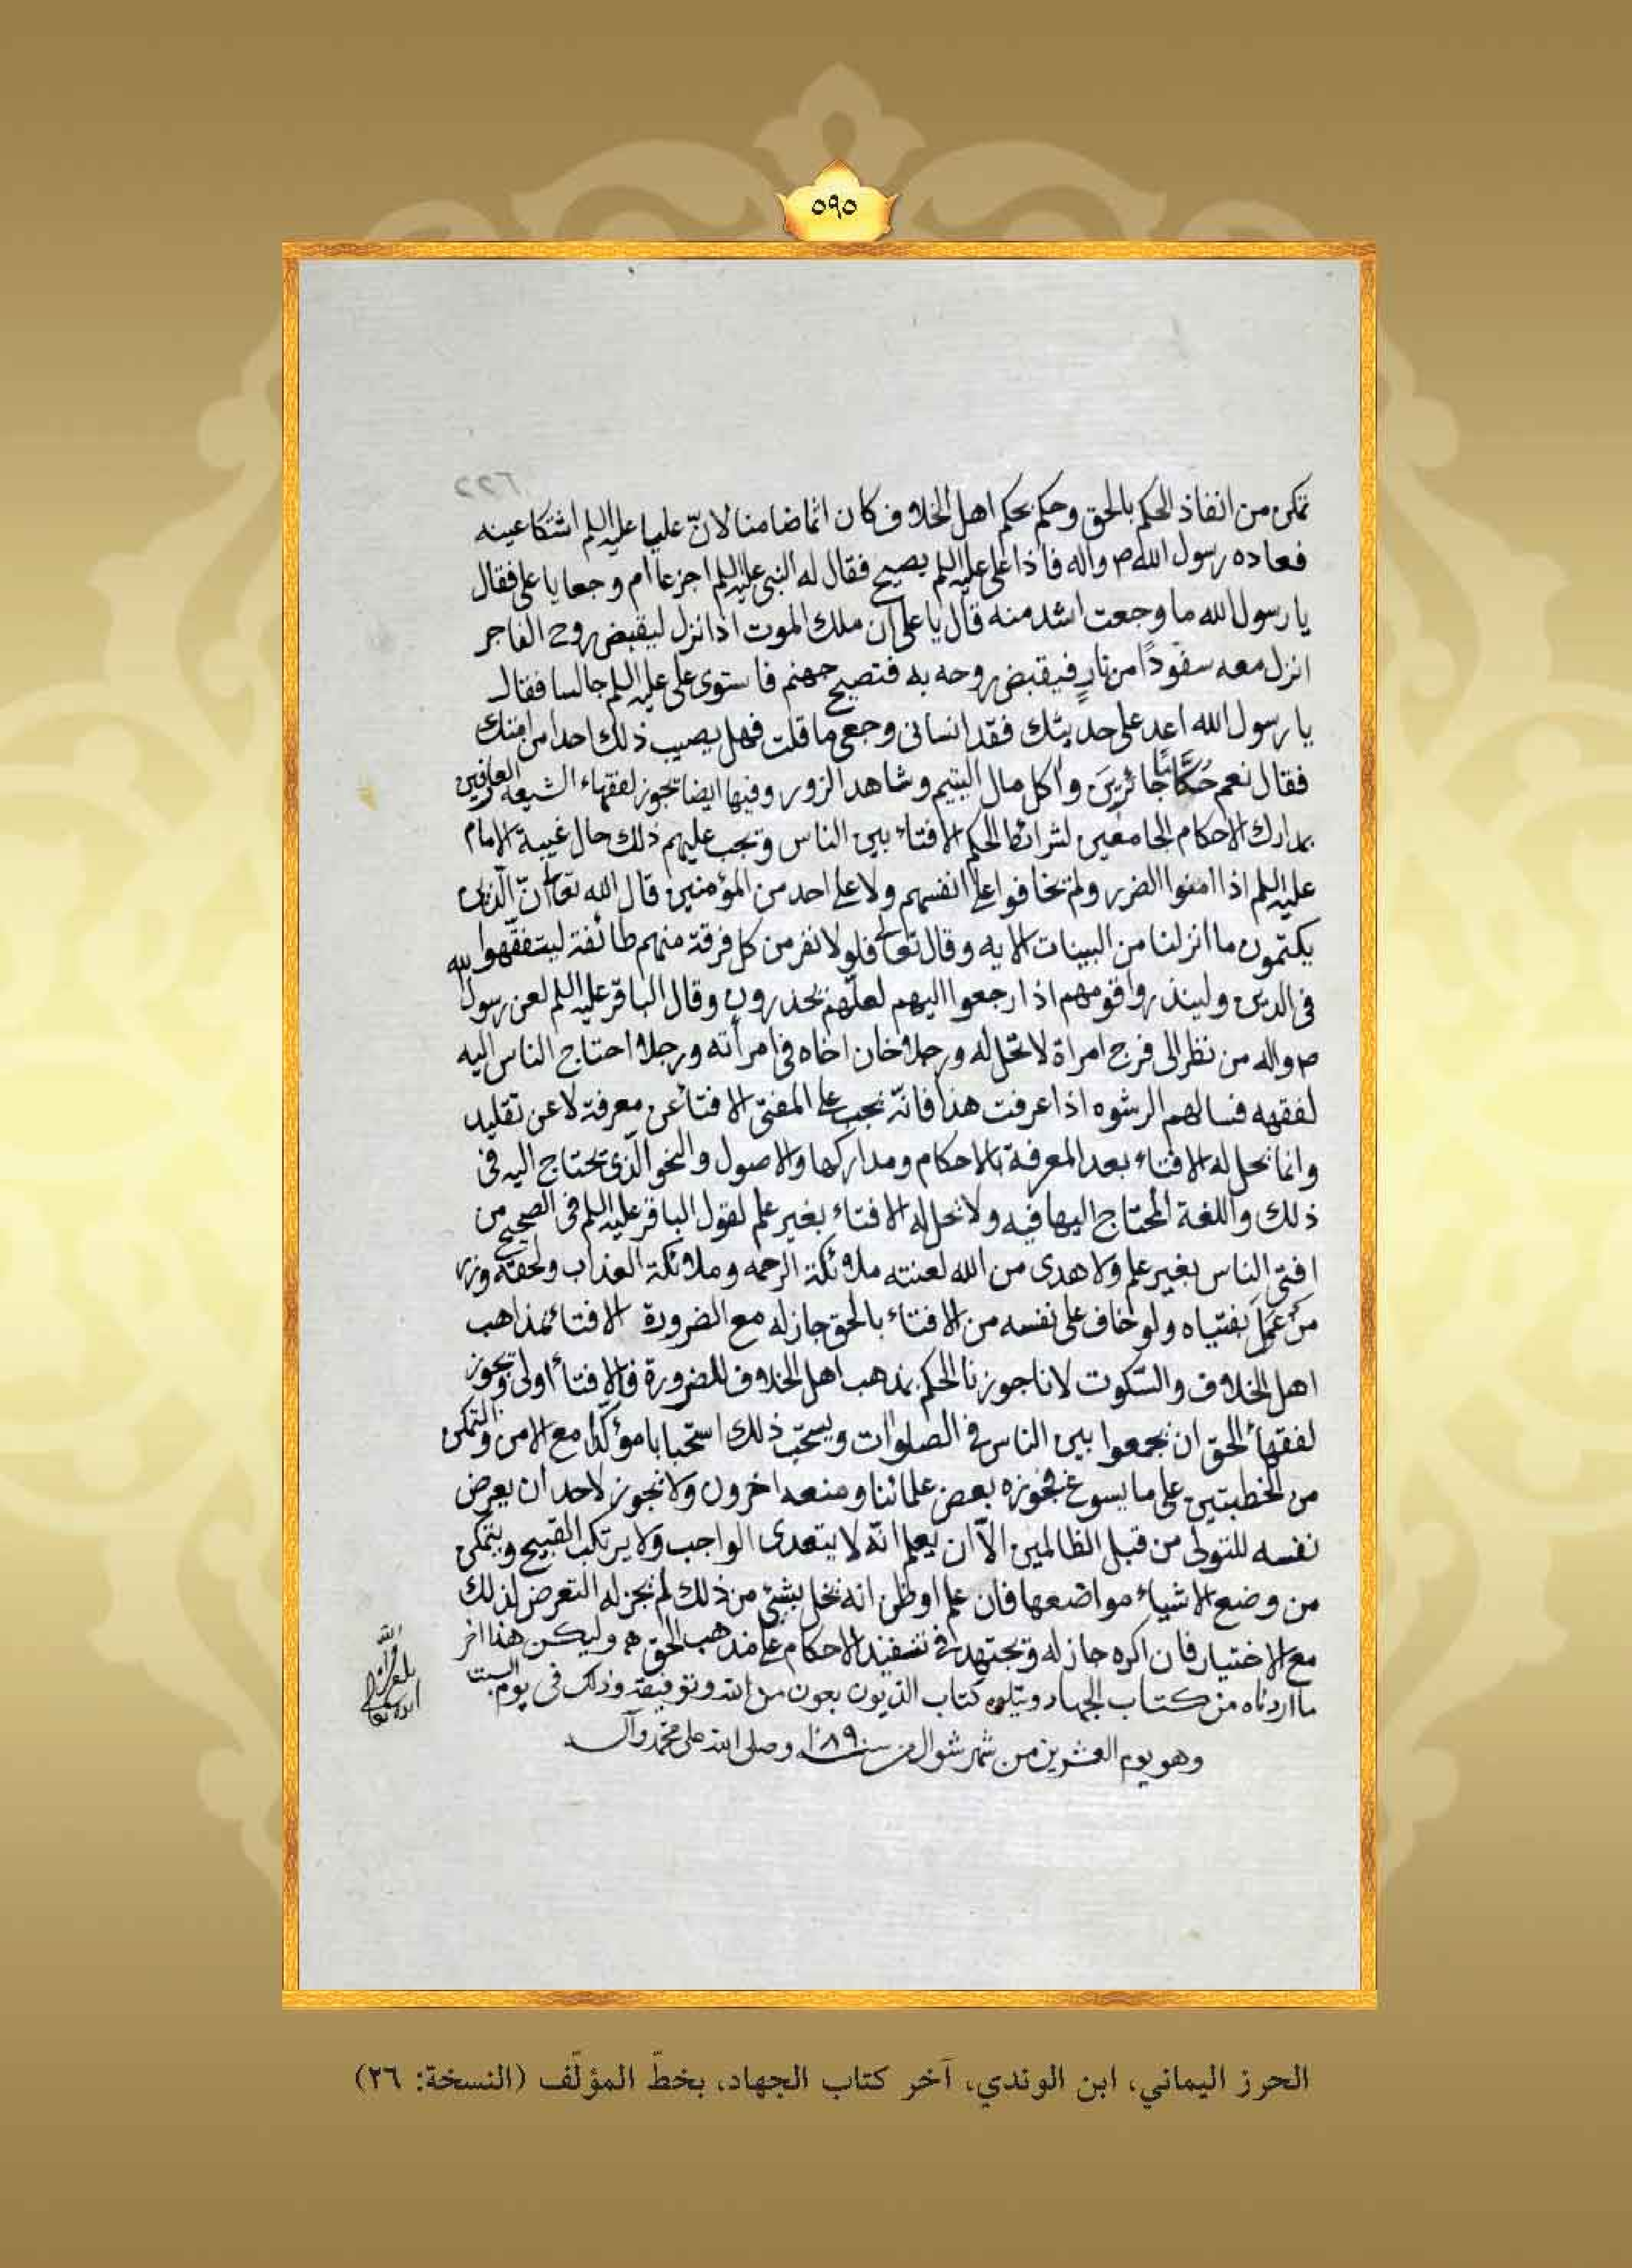 ٥٩٥
٢٢٦
تمكن من انفاذ الحكم بالحق وحكم بحكم اهل الخلاف كان اثما ضامنا لانّ عليا عليه السلم اشتكا عينه
فعاده رسول الله ص واله فاذا على عليه السلم يصيح فقال له النبي عليه السلم اجزعا ام وجعا يا على فقال
يا رسول الله ما وجعت اشد منه قال يا على ان ملك الموت اذا نزل ليقبض روح الفاجر
انزل معه سفّودًا من نارٍ فيقبض روحه به فتصيح جهنم فاستوى على عليه السلم جالسا فقال
يا رسول الله اعد على حديثك فقد انسانى وجعى ما قلت فهل يصيب ذلك احدا من امتك
فقال نعم حُكَّامًا جائرِينَ واكل مال اليتيم وشاهد الزور وفيها ايضا تجوز لفقهاء الشيعه العارفين
بمدارك الاحكام الجامعين لشرائط الحكم الافتاء بين الناس وتجب عليهم ذلك حال غيبة الامام
عليه السلم اذا امنوا الضرر ولم تخافوا على انفسهم ولا على احد من المؤمنين قال الله تعالى انّ الّذين
يكتمون ما انزلنا من البينات الايه وقال تعالى فلولا نفر من كل فرقة منهم طائفة ليتفقّهوا
فى الدين ولينذروا قومهم اذا رجعوا اليهم لعلّهم يحذرون وقال الباقر عليه السلم لعن رسول الله
ص واله من نظر الى فرج امراة لا تحل له ورجلا خان اخاه فى امرأته ورجلا احتاج الناس اليه
لفقهه فسالهم الرشوه اذا عرفت هذا فانّه يجب على المفتى الافتاء عن معرفة لا عن تقليد
وانما يحل له الافتاء بعد المعرفة بالاحكام ومداركها والاصول والنحو الّذى يحتاج اليه فى
ذلك واللغة المحتاج اليها فيه ولا يحل له الافتاء بغير علم لقول الباقر عليه السلم فى الصحيح من
افتى الناس بغير علم ولا هدى من الله لعنته ملائكة الرحمه وملائكة العذاب ولحقه وزر
من عَمِلَ بفتياه ولو خاف على نفسه من الافتاء بالحق جاز له مع الضرورة الافتاء بمذاهب
اهل الخلاف والسّكوت لانا جوزنا الحكم بمذهب اهل الخلاف للضرورة فالافتاء اولى وتجوز
لفقهاء الحق ان يجمعوا بين الناس فى الصلوات ويستحبّ ذلك استحبابا مؤكّدا مع الامن والتمكن
من الخطبتين على ما يسوغ فجوزه بعض علمائنا ومنعه اخرون ولا تجوز لاحد ان يعرض
نفسه للتولى من قبل الظالمين الاّ ان يعلم انّه لا يتعدى الواجب ولا يرتكب القبيح ويتمكن
من وضع الاشياء مواضعها فان علم او ظن انه يخل بشئ من ذلك لم يجز له التعرض لذلك
مع الاختيار فان اكره جاز له وتجتهد فى تنفيذ الاحكام على مذهب الحق وليكن هذا اخر
ما اردناه من كتاب الجهاد ويتلوه كتاب الديون بعون من الله وتوفيقه وذلك فى يوم السبت
وهو يوم العشرين من شهر شوال من سنة وصلى الله على محمد وآله
الحرز اليماني، ابن الوندي، آخر كتاب الجهاد، بخطّ المؤلّف (النسخة: ٢٦)